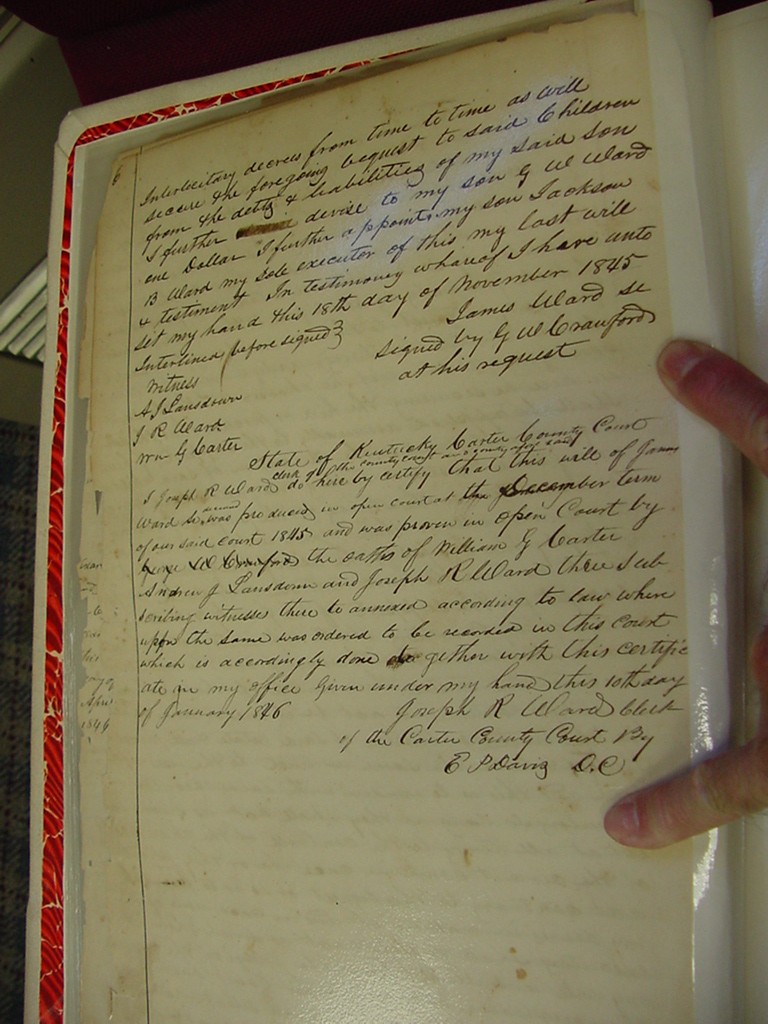 6
Interlocitary decrees from time to time as will
secure & the foregoing bequest to said Children
from the debts & leabilities of my said son
I further devise to my son G W Ward
one Dollar I further appoint my son Jackson
B Ward my sole executor of this my last will
& testiment In testimoney whareof I have unto
set my hand this 18th day of November 1845
James Ward Se
Interlined before signed
signed by G W Crawford
at his request
Witness
A J Lansdown
J R Ward
Wm G Carter
State of Kentucky Carter County Court
clerk of the county court and county afor said
I Joseph R Ward do here by certify that this will of James
Ward Se was produced in open court at the December term
of our said court 1845 and was proven in open Court by
George W Crawford the oaths of William G Carter
Andrew J Lansdown and Joseph R Ward three sub
scribing witnesses there to annexed according to law where
upon the same was ordered to be recorded in this Court
which is accordingly done gether with this certific
ate in my office Given under my hand this 10th day
of January 1846
Joseph R Ward Clerk
of the Carter County Court By
E P Davis D.C
April
1846